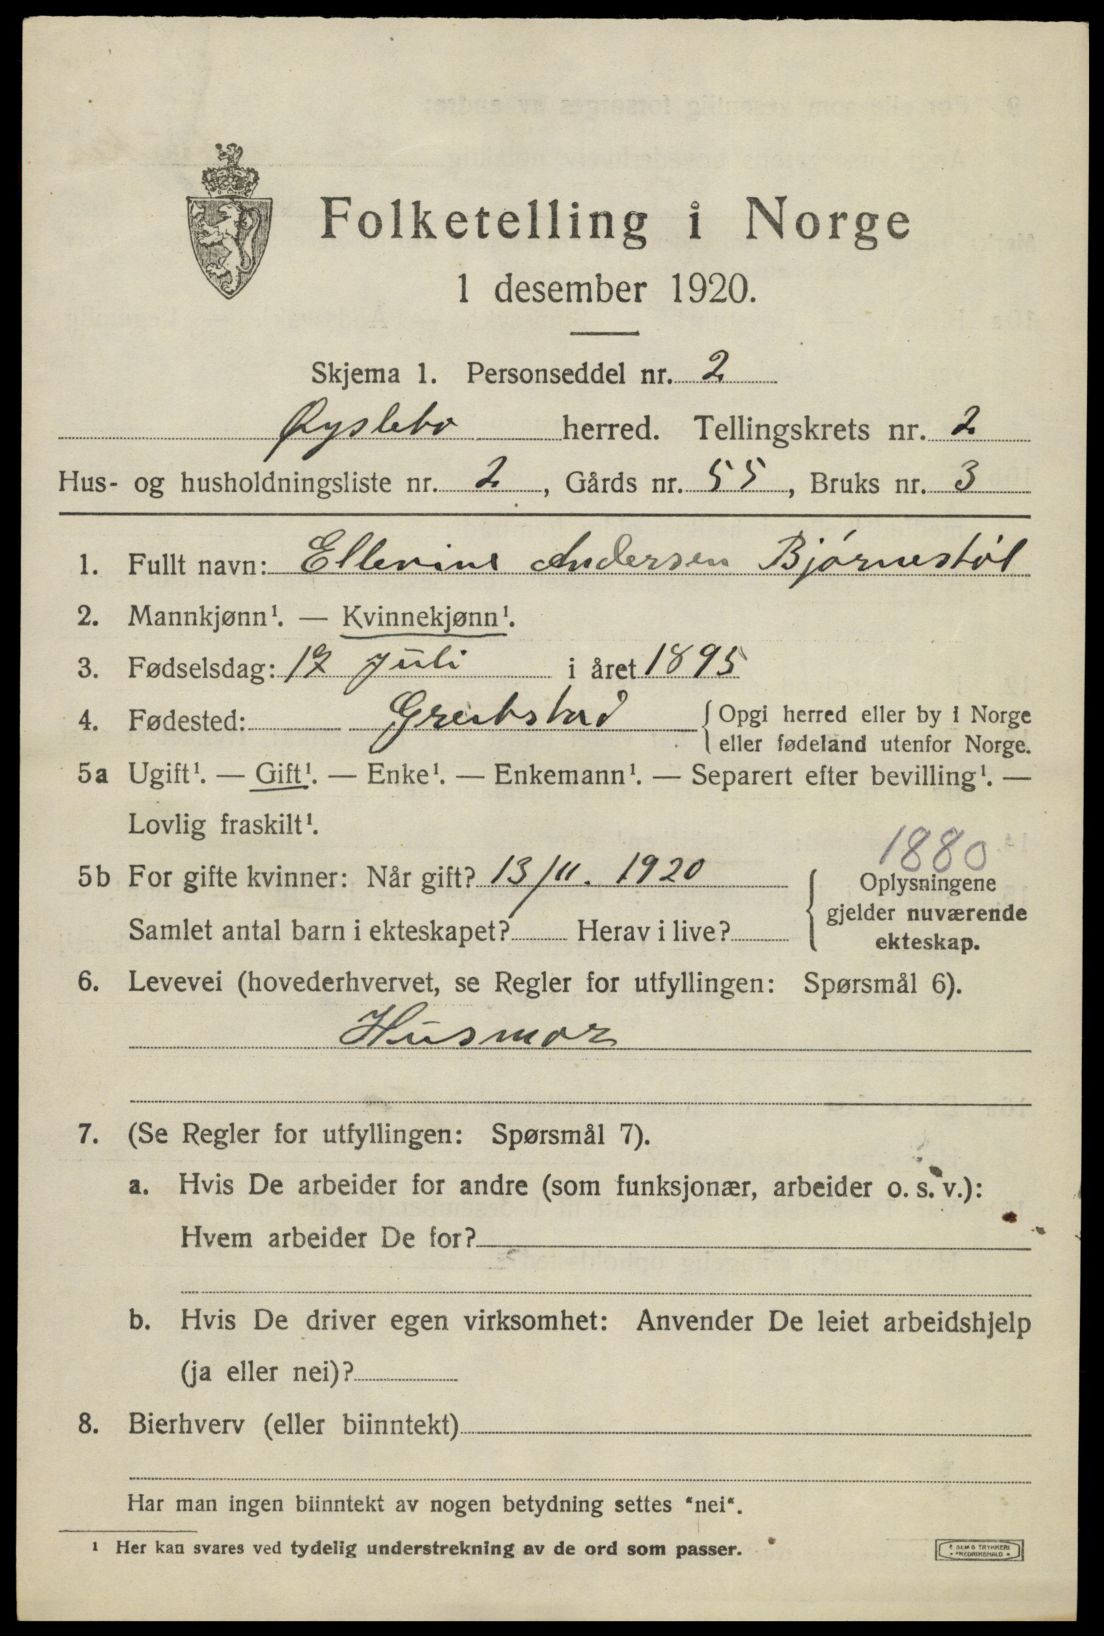 Folketelling i Norge
1 desember 1920.
Skjema 1. Personseddel nr. 2
Øyslebø herred. Tellingskrets nr. 2
Hus- og husholdningsliste nr. 2, Gårds nr. 55, Bruks nr. 3
1. Fullt navn: Ellevine Andersen Bjørnestøl
2. Mannkjønn¹. — Kvinnekjønn¹.
3. Fødselsdag: 17 juli i året 1895
4. Fødested: Greibstad { Opgi herred eller by i Norge
eller fødeland utenfor Norge.
5a Ugift¹. — Gift¹. — Enke¹. — Enkemann¹. — Separert efter bevilling¹. —
Lovlig fraskilt¹.
1880
5b For gifte kvinner: Når gift? 13/11. 1920
Samlet antal barn i ekteskapet? Herav i live?
{ Oplysningene
gjelder nuværende
ekteskap.
6. Levevei (hovederhvervet, se Regler for utfyllingen: Spørsmål 6).
Husmor
7. (Se Regler for utfyllingen: Spørsmål 7).
a. Hvis De arbeider for andre (som funksjonær, arbeider o. s. v.):
Hvem arbeider De for?
b. Hvis De driver egen virksomhet: Anvender De leiet arbeidshjelp
(ja eller nei)?
8. Bierhverv (eller biinntekt)
Har man ingen biinntekt av nogen betydning settes "nei".
¹ Her kan svares ved tydelig understrekning av de ord som passer.